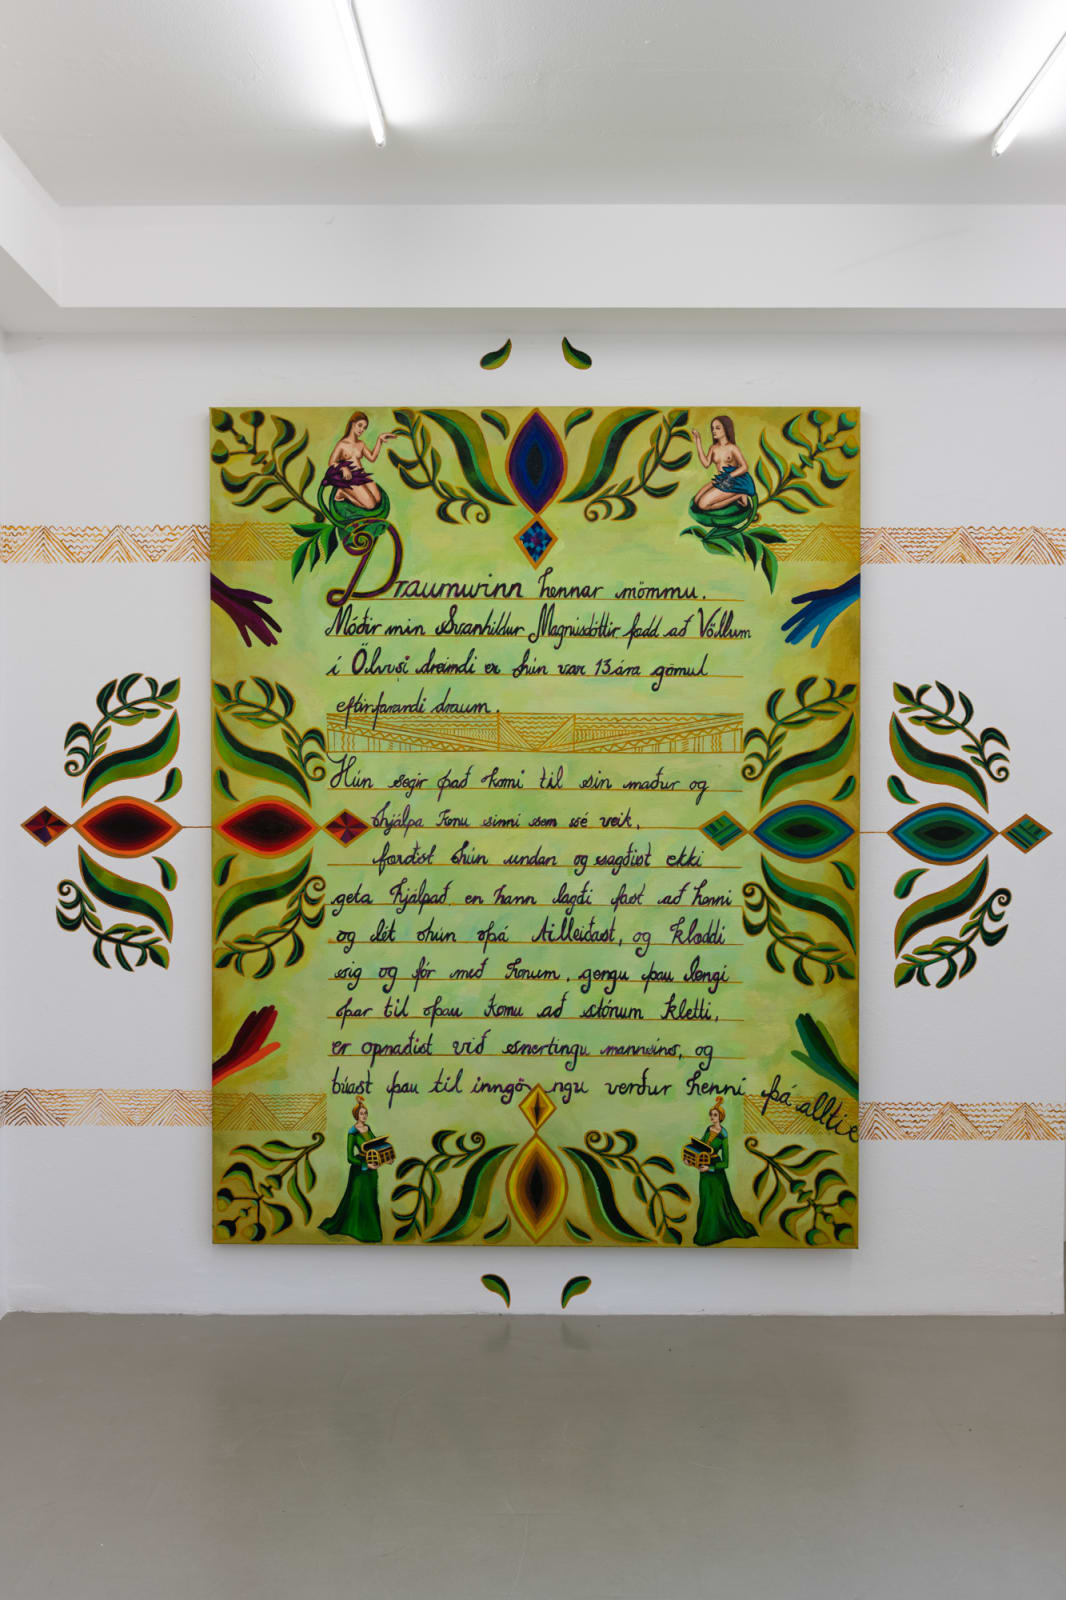 Draumurinn hennar mömmu.
Móðir mín Svanhildur Magnúsdóttir fædd að Völlum
í Ölvusi dreimdi er hún var 13 ára gömul
eftirfarandi draum.
Hún segir það komi til sín maður og
hjálpa konu sinni sem sé veik,
færðist hún undan og sagðist ekki
geta hjálpað, en hann lagði fast að henni
og lét hún þá tilleiðast, og klæddi
sig og fór með honum, gengu þau lengi
þar til þau komu að stórum kletti,
er opnaðist við snertingu mannsins, og
búast þau til inngö ngu verður henni þá alltie